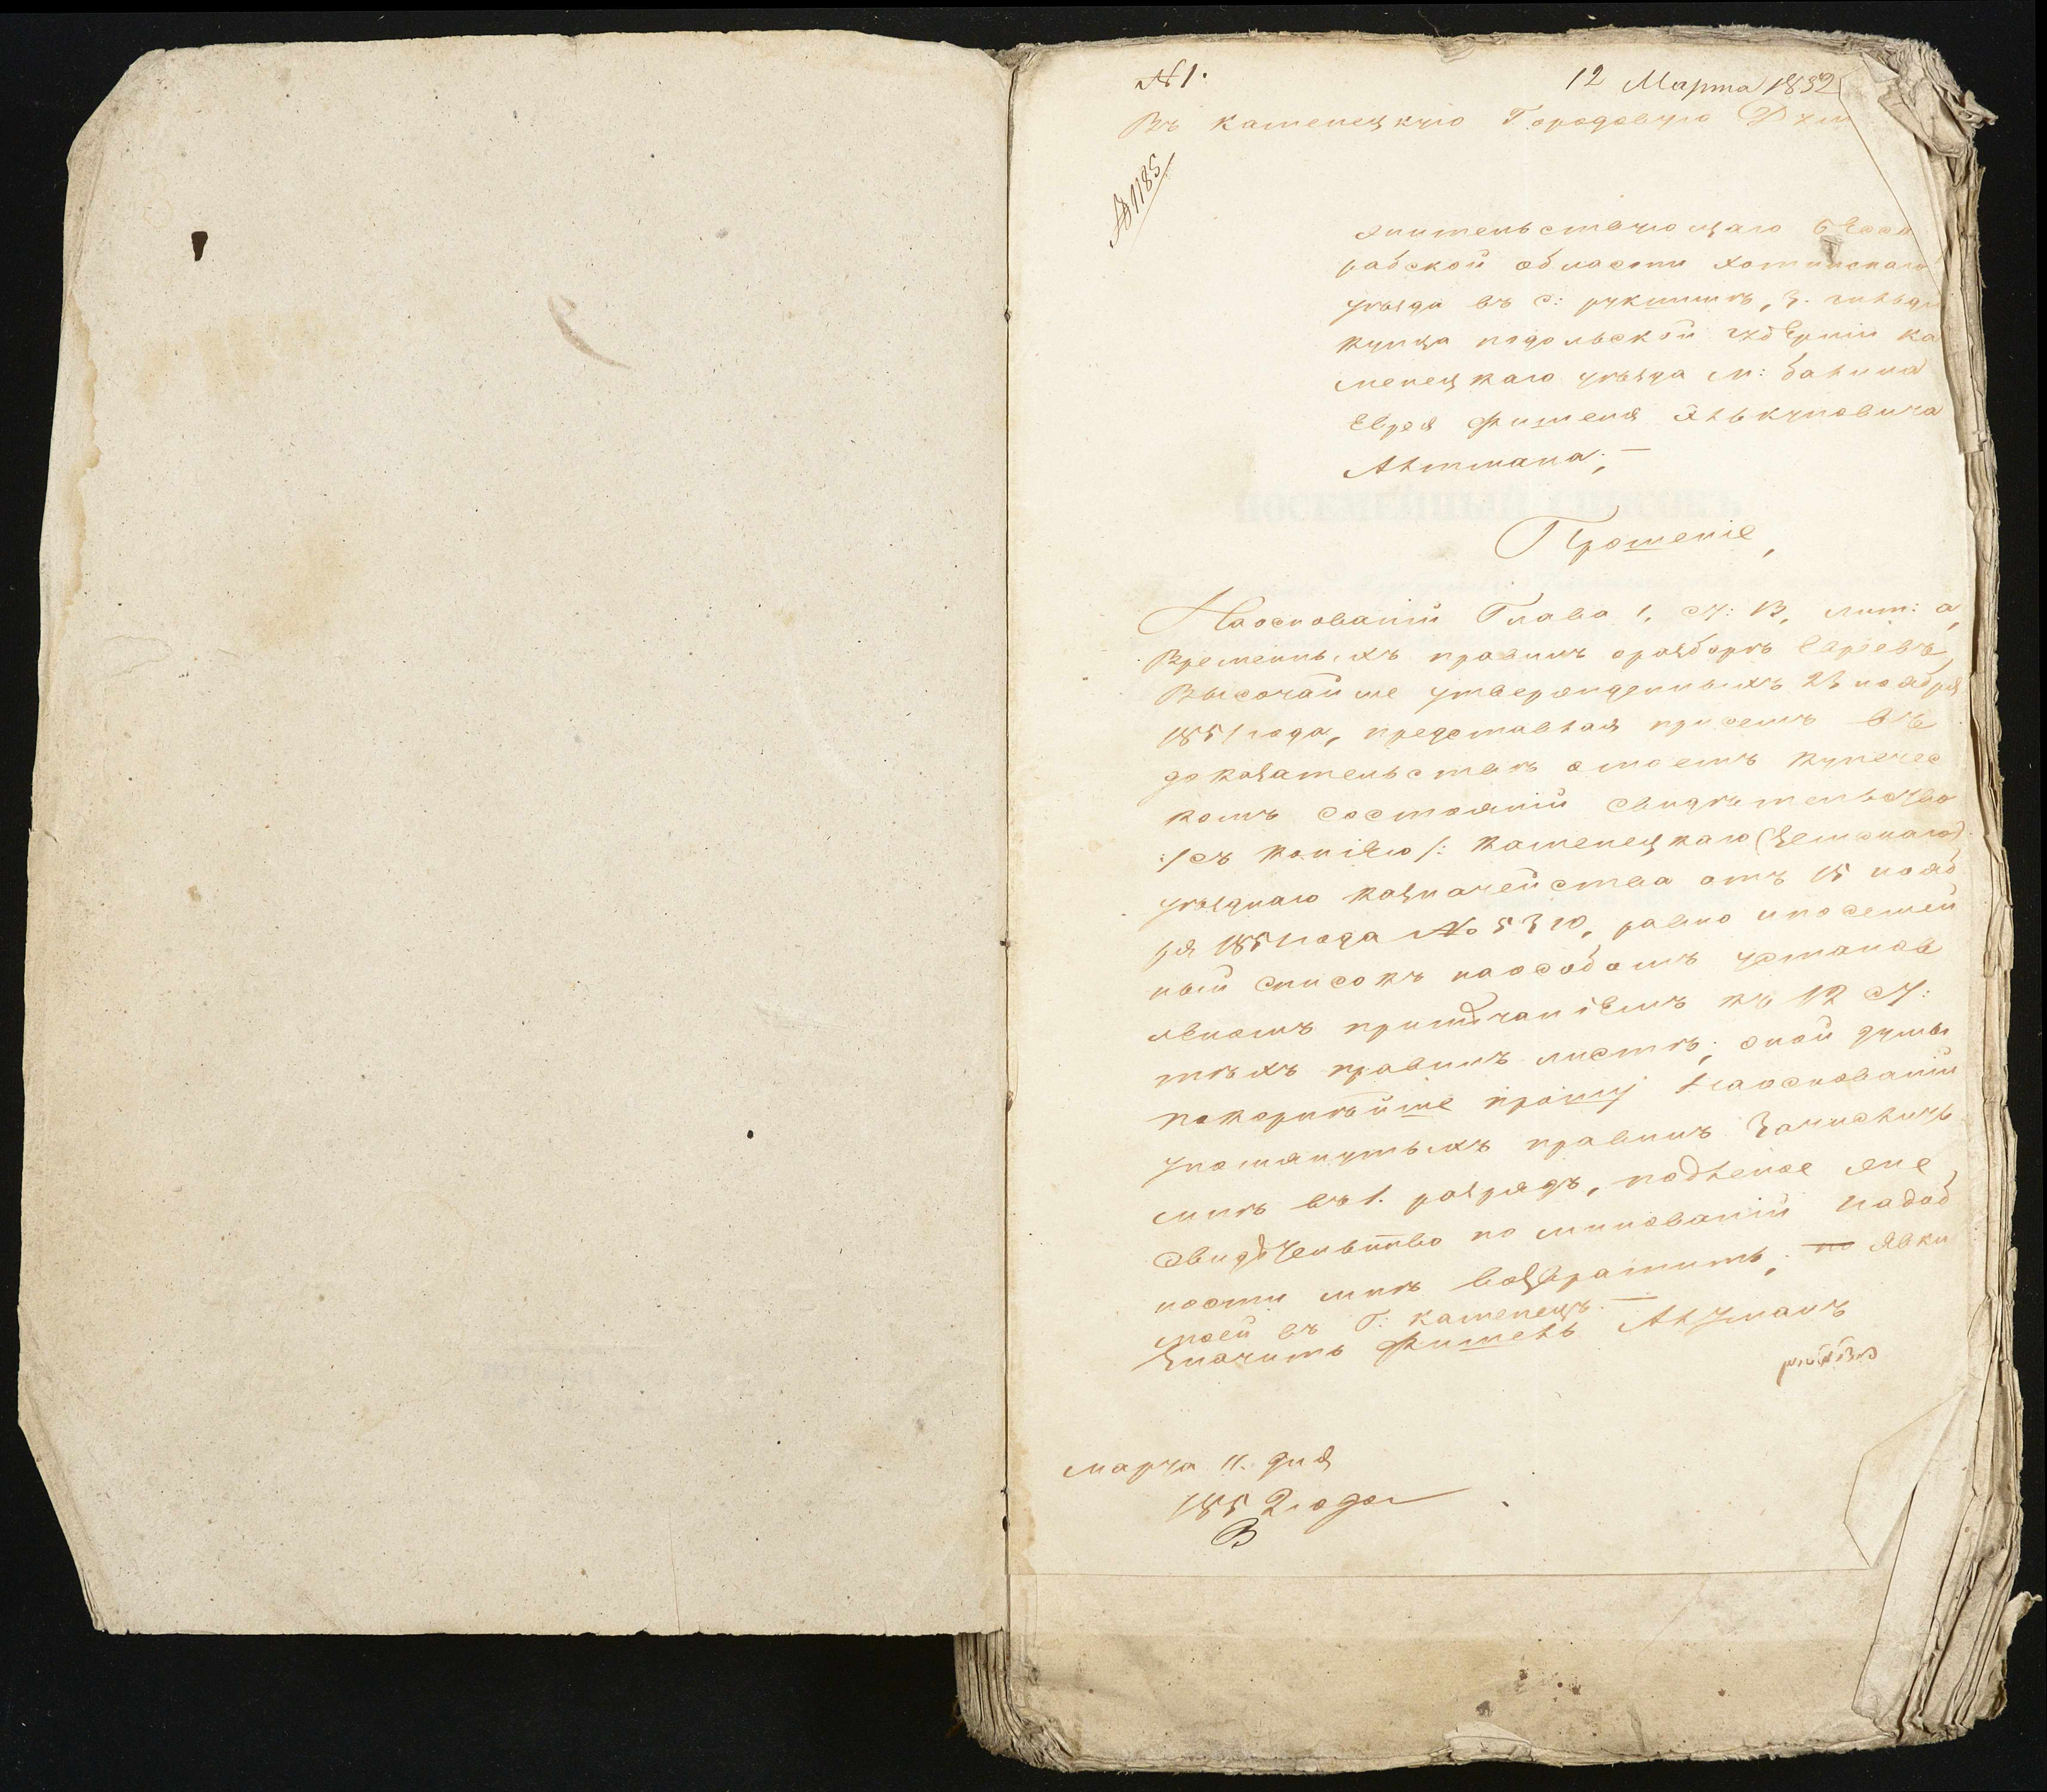 № 1.
12 Марта 1852
Въ каменецкую Городовую Дум
№ 1185
жительствующаго бесса
рабской области хотинскаго
уѣзда въ с: рукшинѣ, 3. гильди
купца подольской губерніи ка
менецкаго уѣзда м:
Еврея Фишеля Янькуловича
Альтмана; —
Прошеніе,
На основаніи Глава 1, ст: 13, лит: а,
Временныхъ правилъ о разборѣ Евреевъ,
Высочайше утвержденныхъ 23 ноября
1851 года, представляя присемъ въ
доказательствѣ о моемъ купечес
комъ состояніи свидѣтельство
:/съ копіею/: каменецкаго (Земскаго)
уѣзднаго казначейства отъ 15 нояб
ря 1851 года № 5310, равно и посемей
ный списокъ на особомъ установ
леномъ примѣчаніемъ къ 12 ст:
тѣхъ правилъ листѣ; оной думы
покорнѣйше прошу На основаніи
упомянутыхъ правилъ Зачислить
мнѣ въ 1. разрядъ, подленое же
свидѣтельство по минованіи надоб
ности мнѣ возвратить; по явки
моей въ Г: каменецъ. —
Значитъ Фишель Альтманъ
марта 11. дня
1852 года
В